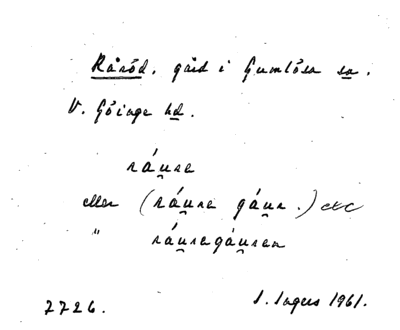 Råröd, gård i Gumlösa sn.
V. Göinge hd.
ráu̯re
eller (ráu̯re gáu̯r.) etc
" ráu̯regáu̯ren
7726. I. Ingers 1961.